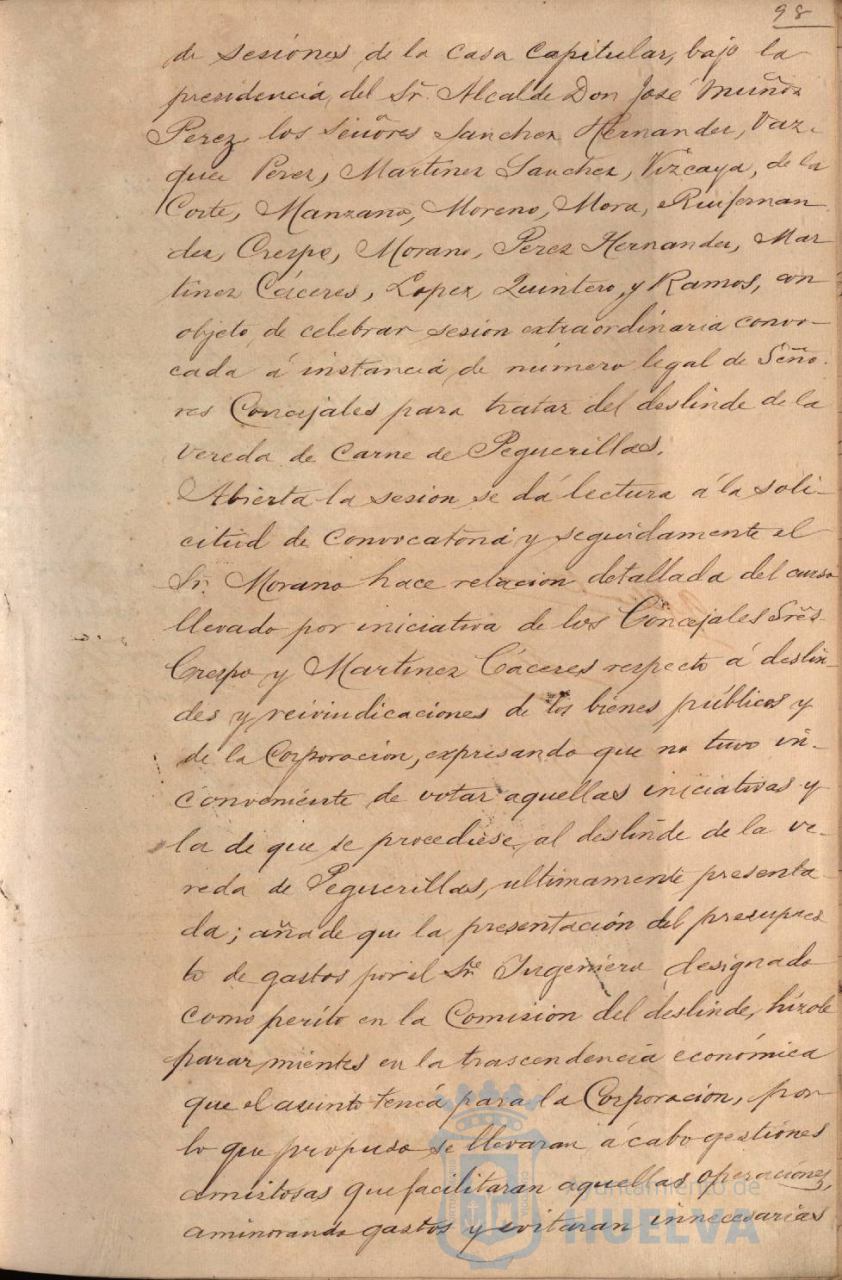 98
de sesiones de la casa capitular, bajo la
presidencia, del Sr. Alcalde Don José Muñoz
Perez los Señores Sanchez Hernandez, Vaz-
quez Perez, Martinez Sanchez, Vizcaya, de la
Corte, Manzano, Moreno, Mora, Ruifernan
dez, Crespo, Morano, Perez Hernandez, Mar
tinez Cáceres, Lopez, Quintero, y Ramos, con
objeto, de celebrar sesion extraordinaria convo-
cada á instancia, de número legal de Seño-
res Concejales para tratar del deslinde de la
vereda de carne de Peguerillas.
Abierta la sesion se dá lectura á la soli-
citud de convocatoria y seguidamente el
Sr. Morano hace relacion detallada del curso
llevado por iniciativa de los Concejales Sres
Crespo y Martinez Cáceres respecto á deslin-
des y reivindicaciones de los bienes públicos y
de la Corporacion, expresando que no tuvo in-
conveniente de votar aquellas iniciativas y
la de que se procediese, al deslinde de la ve-
reda de Peguerillas, ultimamente presenta-
da; añade que la presentación del presupues
to de gastos por el Sr. Ingeniero designado
como perito en la Comision del deslinde, hízole
parar mientes en la trascendencia económica
que el asunto tenía para la Corporacion, por
lo que propuso se llevaran á cabo gestiones
amistosas que facilitaran aquellas operaciones,
aminorando gastos y evitaran innecesarias
Ayuntamiento de
HUELVA